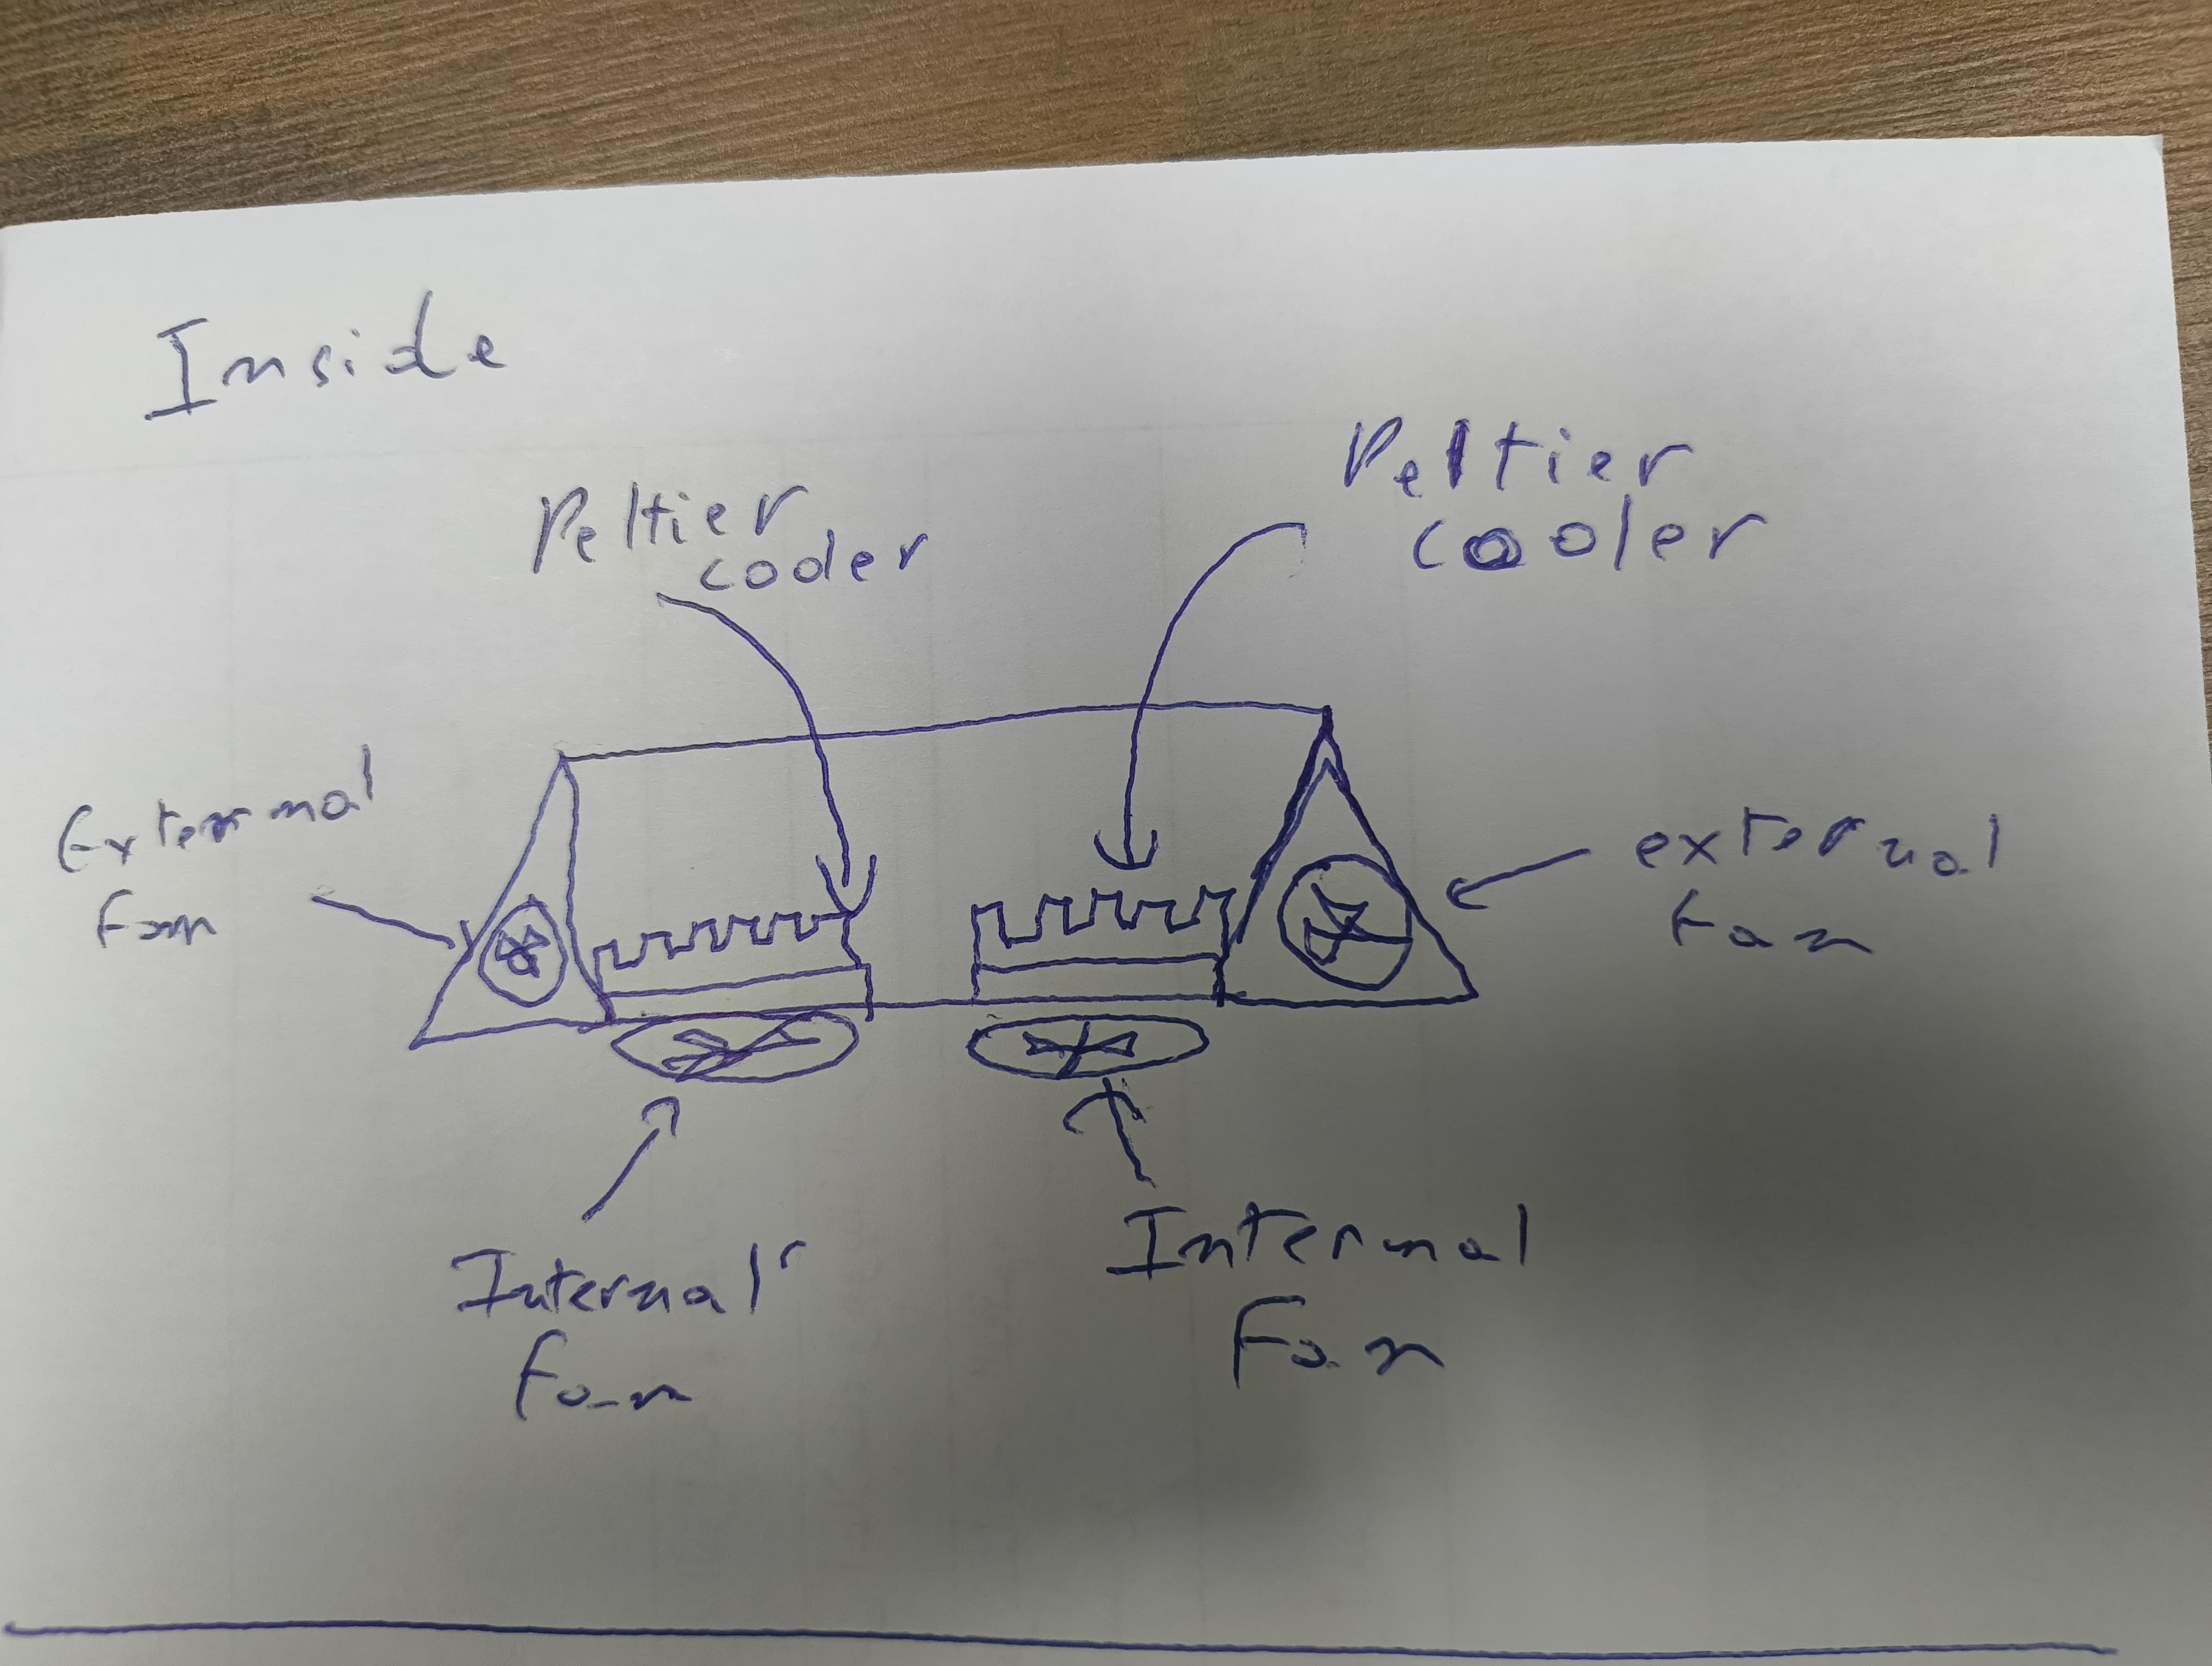 Inside
Peltier
cooler
Peltier
cooler
External
fan
external
fan
Internal
fan
Internal
Fan